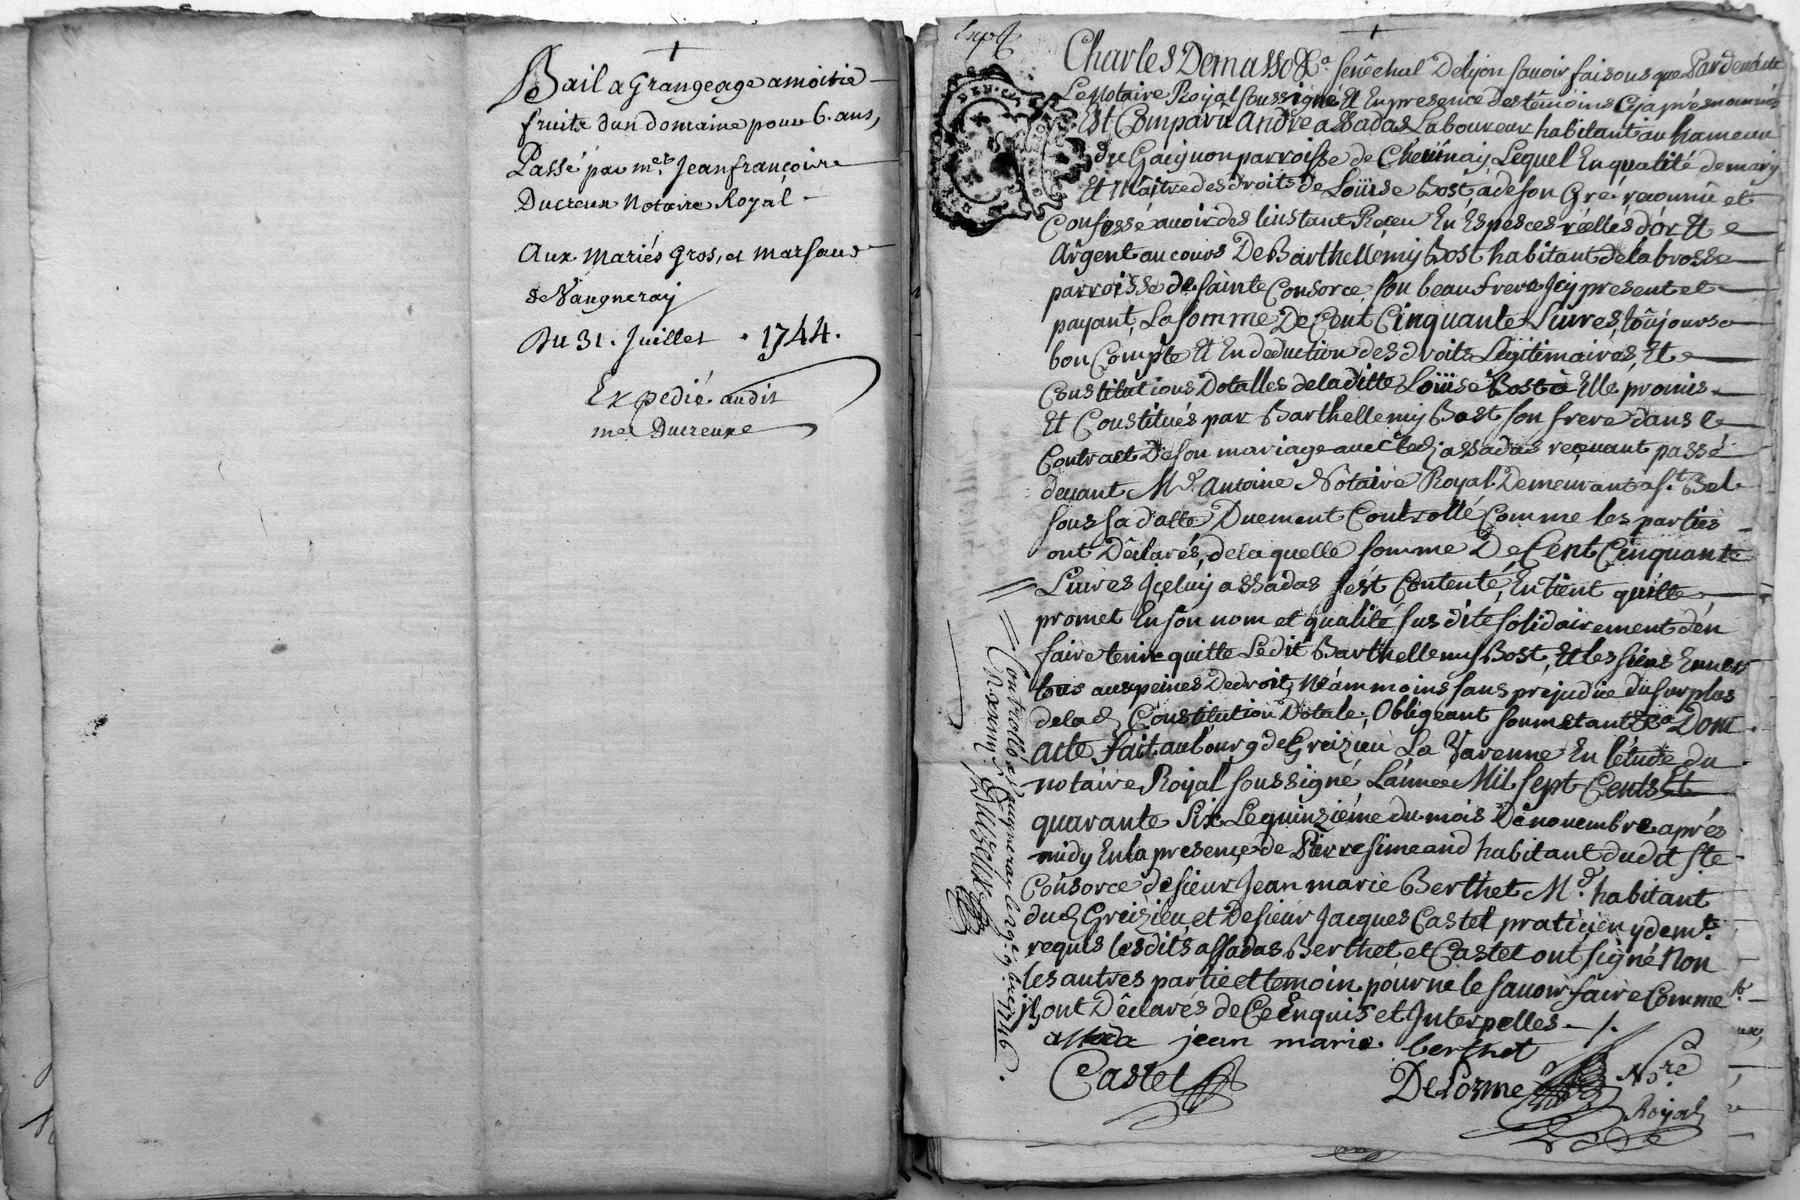 Bail a Grangeage a moitié
fruits dun domaine pour 6. ans,
Passé par me. Jean françois
Ducreux Notaire Royal
Aux mariés Gros, et marsaud
de Vaugneray
Du 31. Juillet . 1744.
Expedié audit
me Ducreux
Expé
Charles Demasso &a. senéchal Delyon savoir faisons que Pardevant
Le Notaire Royal soussigné Et En presence des témoins Cy aprés nommés
Est Comparu André assadas Laboureur habitant au hameau
du Gaignon parroisse de Chevinay Lequel En qualité de mary
Et Maitre des droits de Loüise Bost, a de son Gré reconnu et
Confessé avoir des linstant Receu En Especes réelles d'or Et
Argent au cours De Barthellemy Bost habitant de la brosse
parroisse de sainte Consorce son beaufrere Icy present et
payant, La somme De Cent Cinquante Livres, toûjours a
bon Compte Et En deduction des droits Legitimaires, Et
Constitutions Dotalles de laditte Loüise Bost à Elle promis
Et Constitués par Barthellemy Bost son frere dans le
Contract De son mariage avec led. assadas recevant passé
devant Me. Antoine Notaire Royal Demeurant a st. Bel
sous sa datte Duement Controllé Comme les parties
ont Déclarés, de laquelle somme De Cent Cinquante
Livres Iceluy assadas s'est Contenté, En tient quitte
promet En son nom et qualité susdite solidairement d'en
faire tenir quitte Ledit Barthellemy Bost, Et les siens Envers
tous aux peines De droit, Néammoins sans prejudice du surplus
de lad. Constitution Dotale, Obligeant soumetant &a Dont
acte fait au bourg de Greizieu La Varenne En l'étude du
notaire Royal soussigné, L'année Mil sept Cents Et
quarante Six Le quinziéme du mois De novembre aprés
midy En la presence de Pierre Simeand habitant dudit ste
Consorce de sieur Jean marie Berthet Md. habitant
dud. Greizieu, et De sieur Jacques Castel praticien y demt.
requis lesdits assadas Berthet et Castel ont signé Non
les autres partie et temoin pour ne le savoir faire Comme
ils ont Déclarés de Ce Enquis et Interpelles
assada jean marie berthet
Castel Delorme Nore
Royal
Controllé a Vaugneray le 29e. 9bre 1746.
R. Ducreux